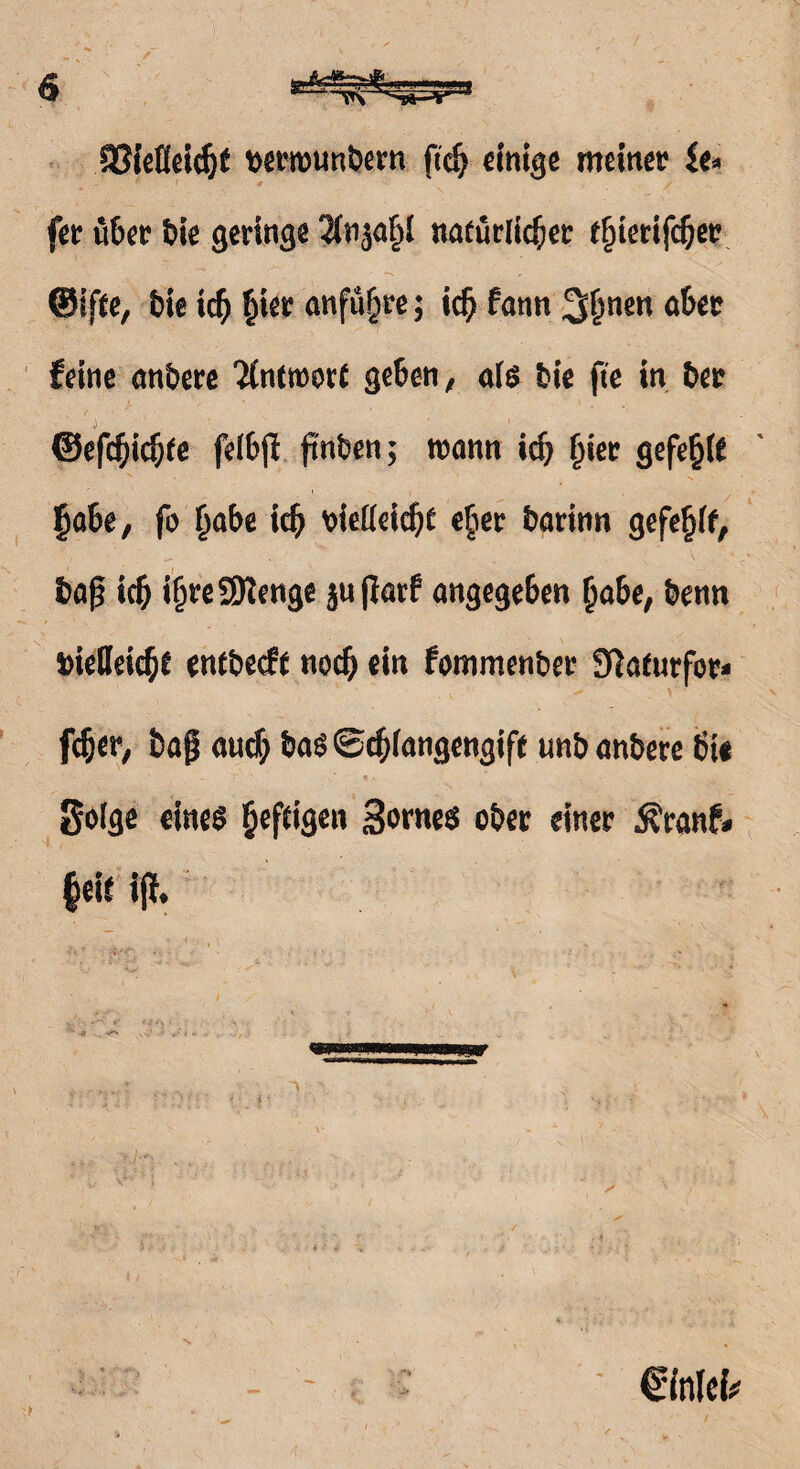 6
Vielleicht verwundern sich einige meiner Le-
ser über die geringe Anzahl natürlicher thierischer
Gifte, die ich hier anführe; ich kann Ihnen aber
keine andere Antwort geben, als die sie in der
Geschichte selbst finden; wann ich hier gefehlt
habe, so habe ich vielleicht eher darinn gefehlt,
daß ich ihre Menge zu stark angegeben habe, denn
vielleicht entdeckt noch ein kommender Naturfor-
scher, daß auch das Schlangengift und andere die
Folge eines heftigen Zornes oder einer Krank-
heit ist.
Einlei-